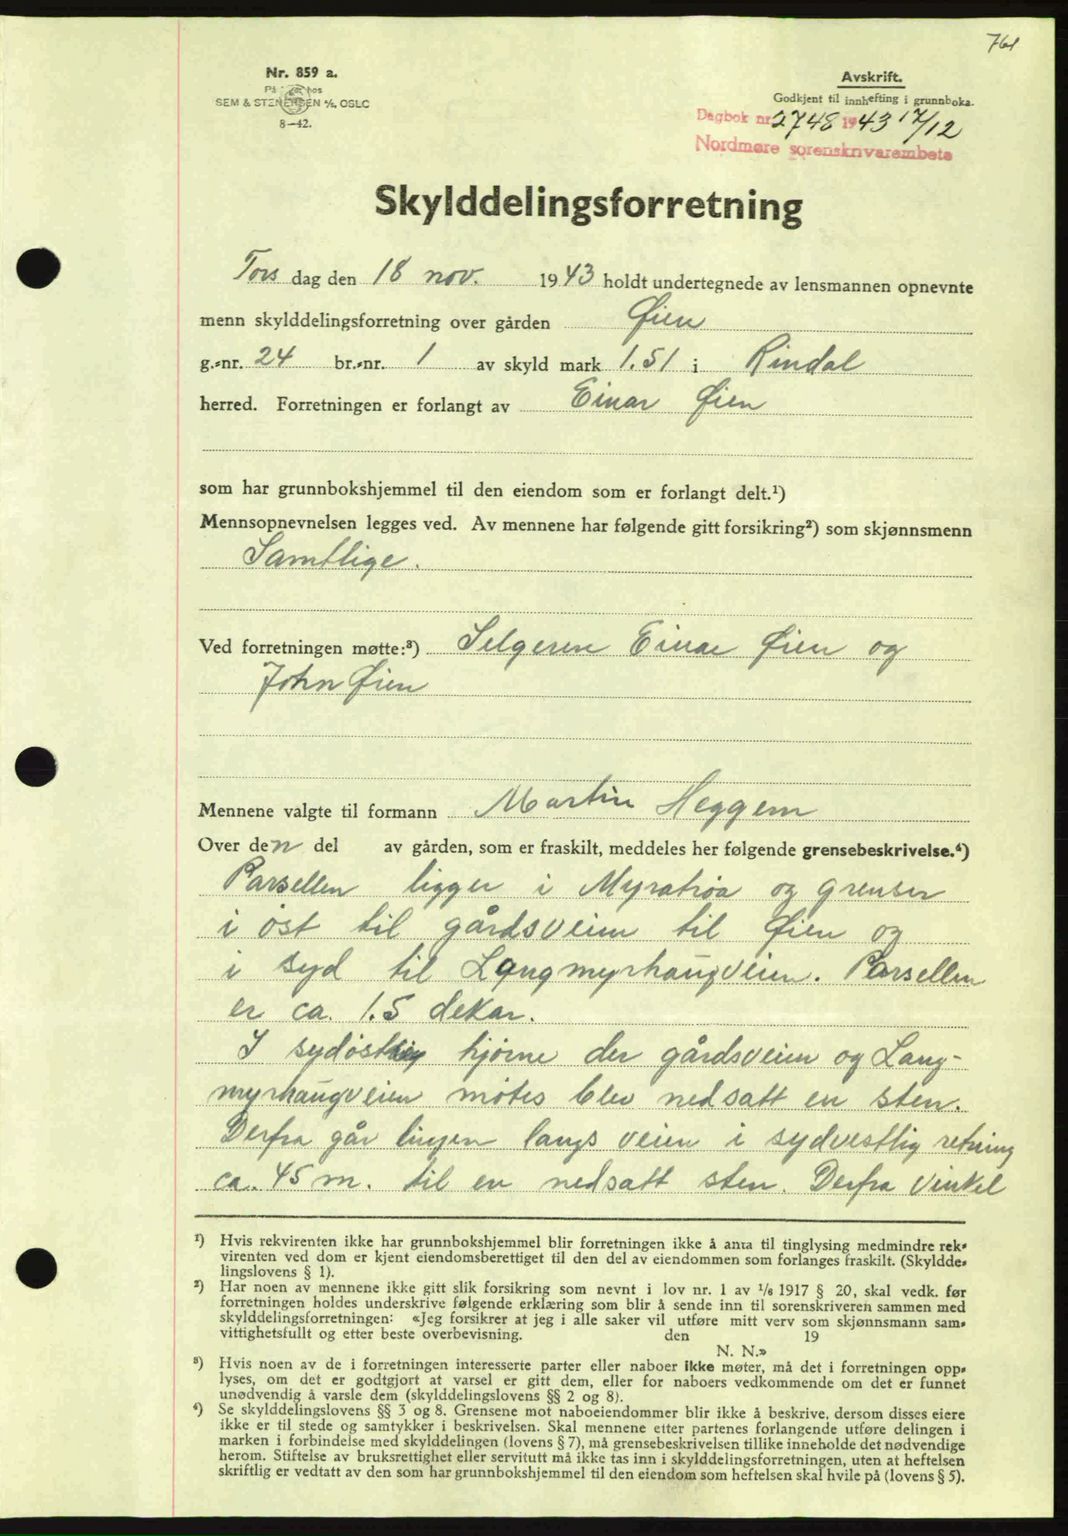 761
Nr. 859 a.
På lager hos
SEM & STENERSEN A/S, OSLO
8—42.
Avskrift.
Godkjent til innhefting i grunnboka.
Dagbok nr. 2748 1943 17/12
Nordmøre sorenskrivarembete
Skylddelingsforretning
Tors dag den 18 nov. 1943 holdt undertegnede av lensmannen opnevnte
menn skylddelingsforretning over gården Øien
g.-nr. 24 br.-nr. 1 av skyld mark 1.51 i Rindal
herred. Forretningen er forlangt av Einar Øien
som har grunnbokshjemmel til den eiendom som er forlangt delt.¹)
Mennsopnevnelsen legges ved. Av mennene har følgende gitt forsikring²) som skjønnsmenn
Samtlige.
Ved forretningen møtte:³) Selgeren Einar Øien og
John Øien
Mennene valgte til formann Martin Heggem
Over den del av gården, som er fraskilt, meddeles her følgende grensebeskrivelse.⁴)
Parsellen ligger i Myratrøa og grenser
i øst til gårdsveien til Øien og
i syd til Langmyrhaugveien. Parsellen
er ca. 1.5 dekar.
I sydøstlig hjørne der gårdsveien og Lang-
myrhaugveien møtes blev nedsatt en sten.
Derfra går linjen langs veien i sydvestlig retning
ca. 45 m. til en nedsatt sten. Derfra vinkel
¹) Hvis rekvirenten ikke har grunnbokshjemmel blir forretningen ikke å anta til tinglysing medmindre rek-
virenten ved dom er kjent eiendomsberettiget til den del av eiendommen som forlanges fraskilt. (Skyldde-
lingslovens § 1).
²) Har noen av mennene ikke gitt slik forsikring som nevnt i lov nr. 1 av 1/6 1917 § 20, skal vedk. før
forretningen holdes underskrive følgende erklæring som blir å sende inn til sorenskriveren sammen med
skylddelingsforretningen: «Jeg forsikrer at jeg i alle saker vil utføre mitt verv som skjønnsmann sam-
vittighetsfullt og etter beste overbevisning. den 19
N. N.»
³) Hvis noen av de i forretningen interesserte parter eller naboer ikke møter, må det i forretningen opp-
lyses, om det er godtgjort at varsel er gitt dem, eller for naboers vedkommende om det er funnet
unødvendig å varsle dem (skylddelingslovens §§ 2 og 8).
⁴) Se skylddelingslovens §§ 3 og 8. Grensene mot naboeiendommer blir ikke å beskrive, dersom disses eiere
ikke er til stede og samtykker i beskrivelsen. Skal mennene etter partenes forlangende utføre delingen i
marken i forbindelse med skylddelingen (lovens § 7), må grensebeskrivelsen tillike inneholde det nødvendige
herom. Stiftelse av bruksrettighet eller servitutt må ikke tas inn i skylddelingsforretningen, uten at heftelsen
skriftlig er vedtatt av den som har grunnbokshjemmel til den eiendom som heftelsen skal hvile på (lovens § 5).